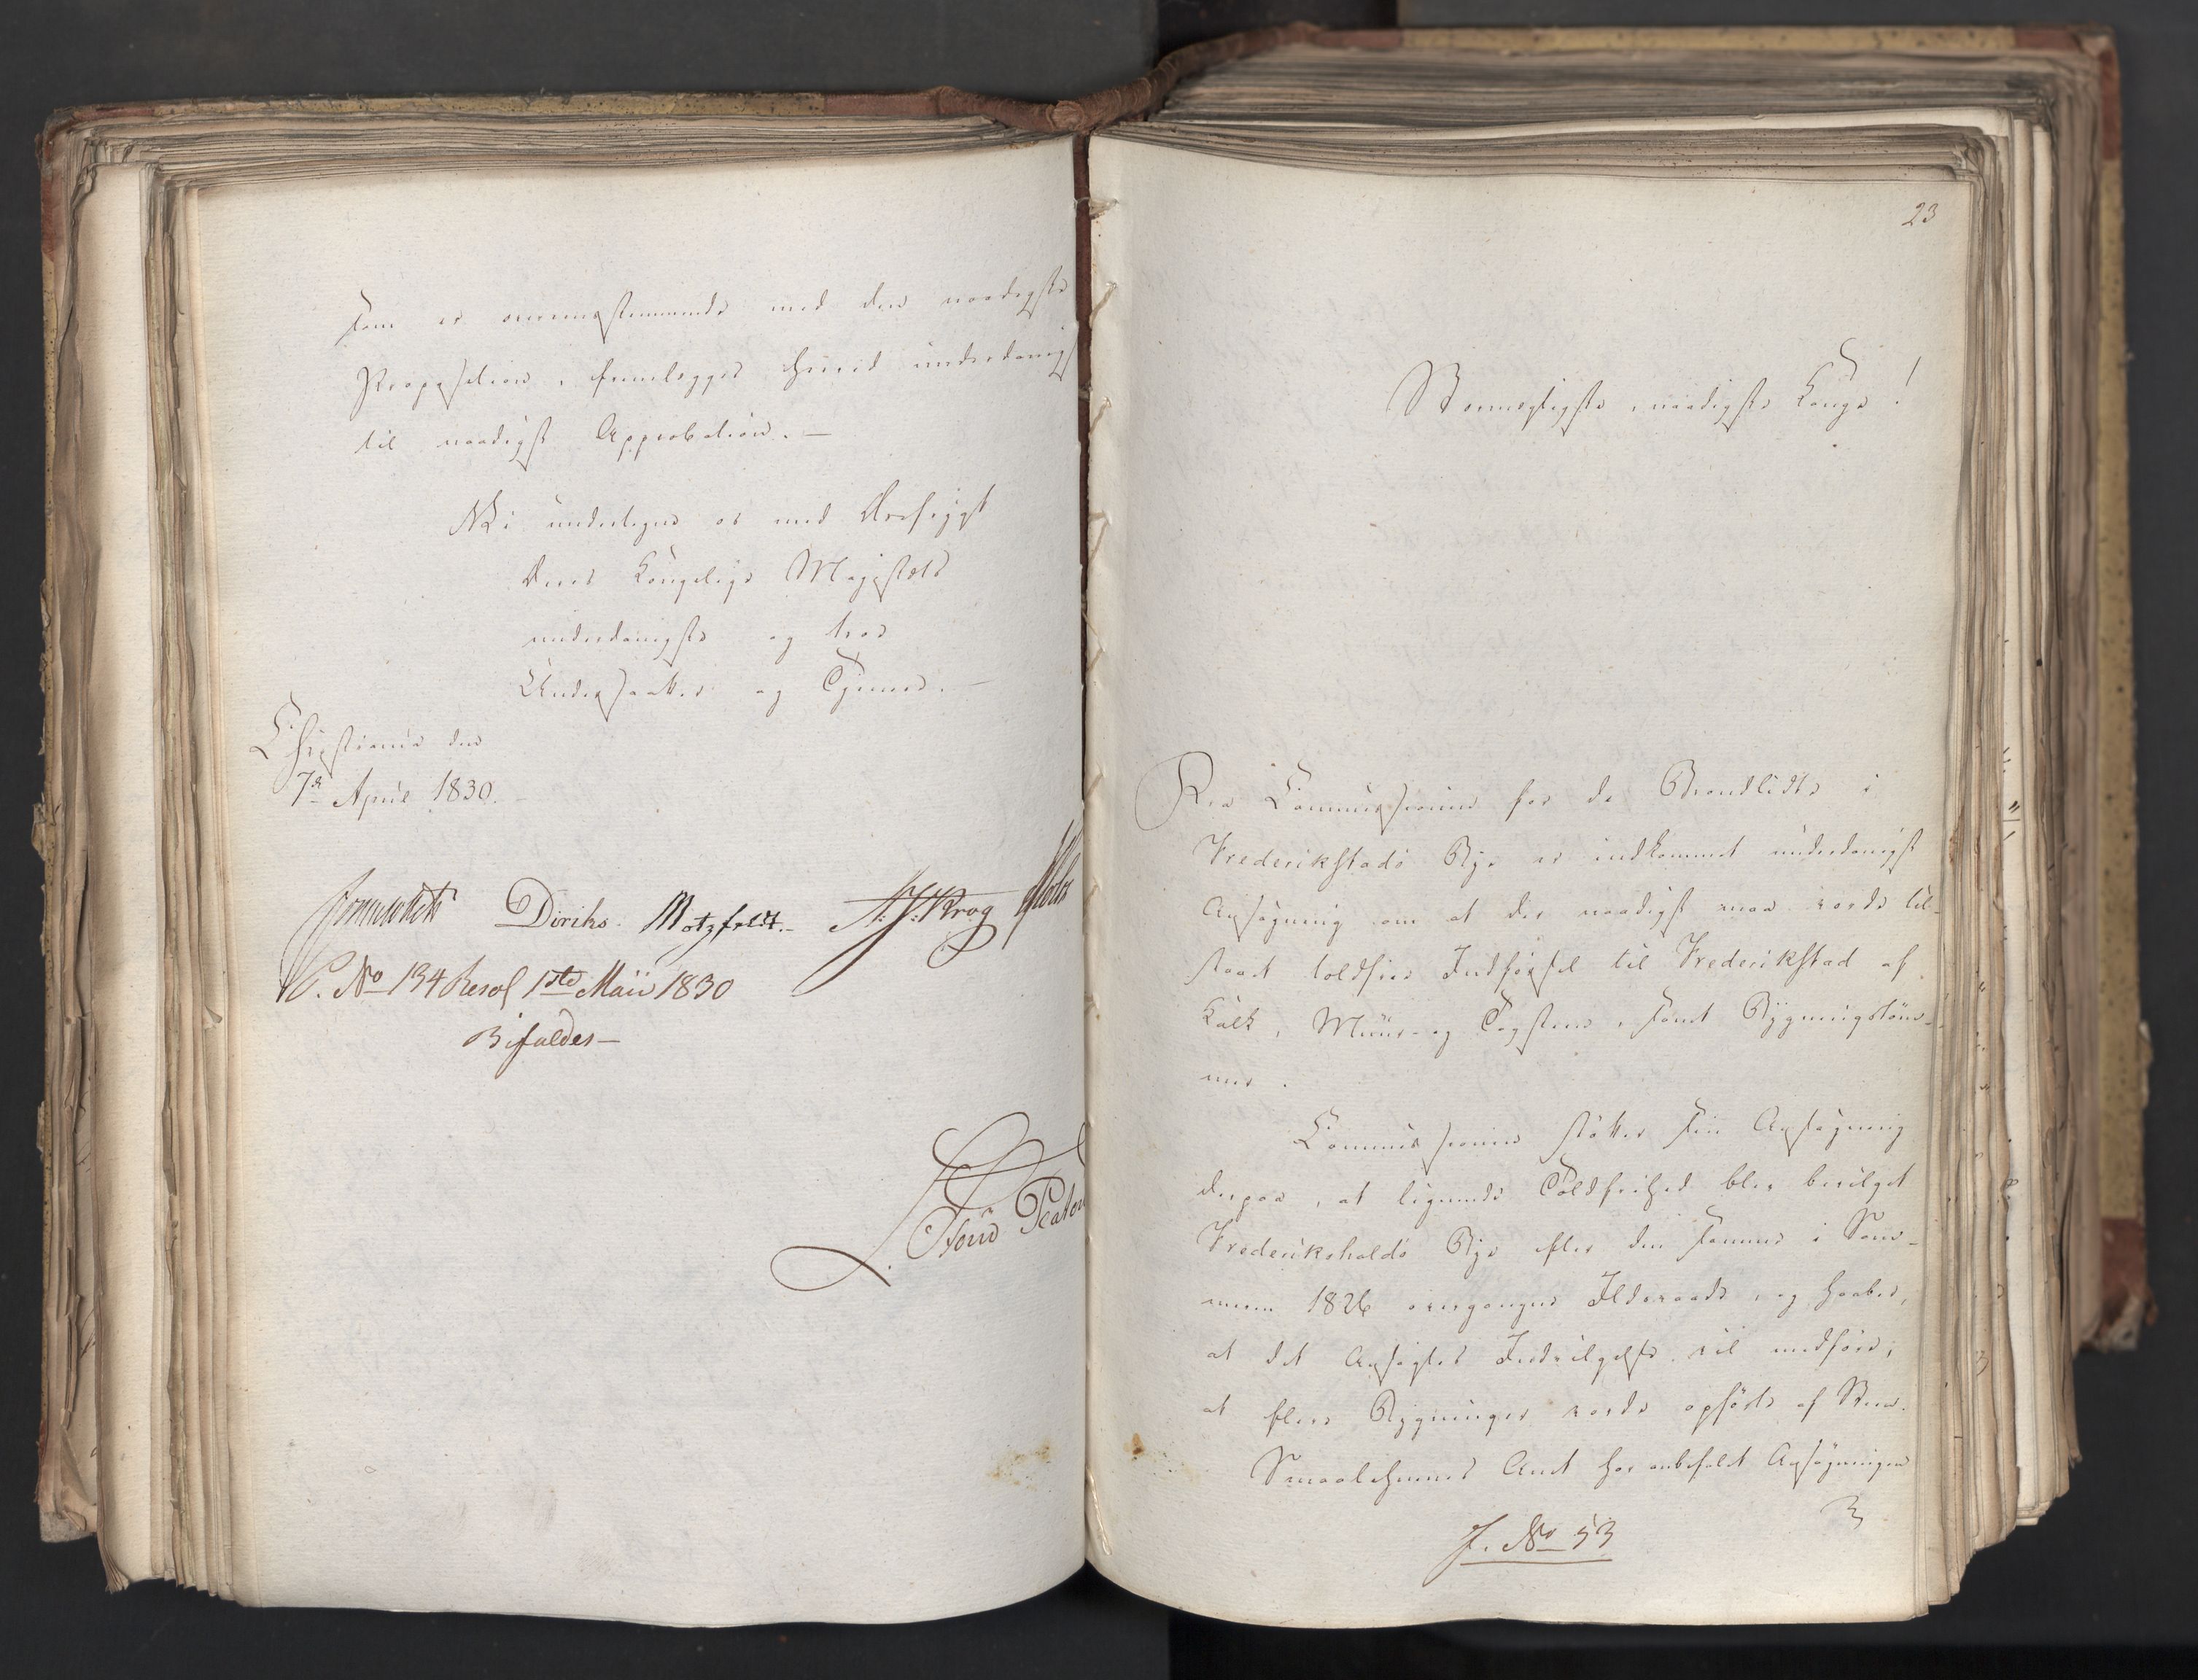 som er overensstemmende med den naadigste
Proposition, fremlægges hervid underdanigst
til naadigst Approbation. —
Vi undertegne os med Ærefrygt
Deres Kongelige Majestæts
underdanigste og troe
Undersaatter og Tjenere. —
Christiania den
7de April 1830.
Diriks. Motzfeldt. Krog
P. No 134 Resol 1ste Maii 1830
Bifaldes —
23
Stormægtigste, naadigste Konge!
Fra Commissionen for de Brandlidte i
Frederikstads Bye er indkommet underdanigst
Ansøgning om at der naadigst maa vorde til-
staaet toldfrie Indførsel til Frederikstad af
Kalk, Muur- og Tagsteen, samt Bygningstøm-
mer.
Commissionen støtter sin Ansøgning
derpaa, at lignende Toldfrihed blev bevilget
Frederikshalds Bye efter den samme i Som-
meren 1826 overgangne Ildsvaade, og haaber,
at det Ansøgtes Indvilgelse vil medføre,
at flere Bygninger vorde opførte af Steen.
Smaalehnenes Amt har anbefalet Ansøgningen
J. No 53
3